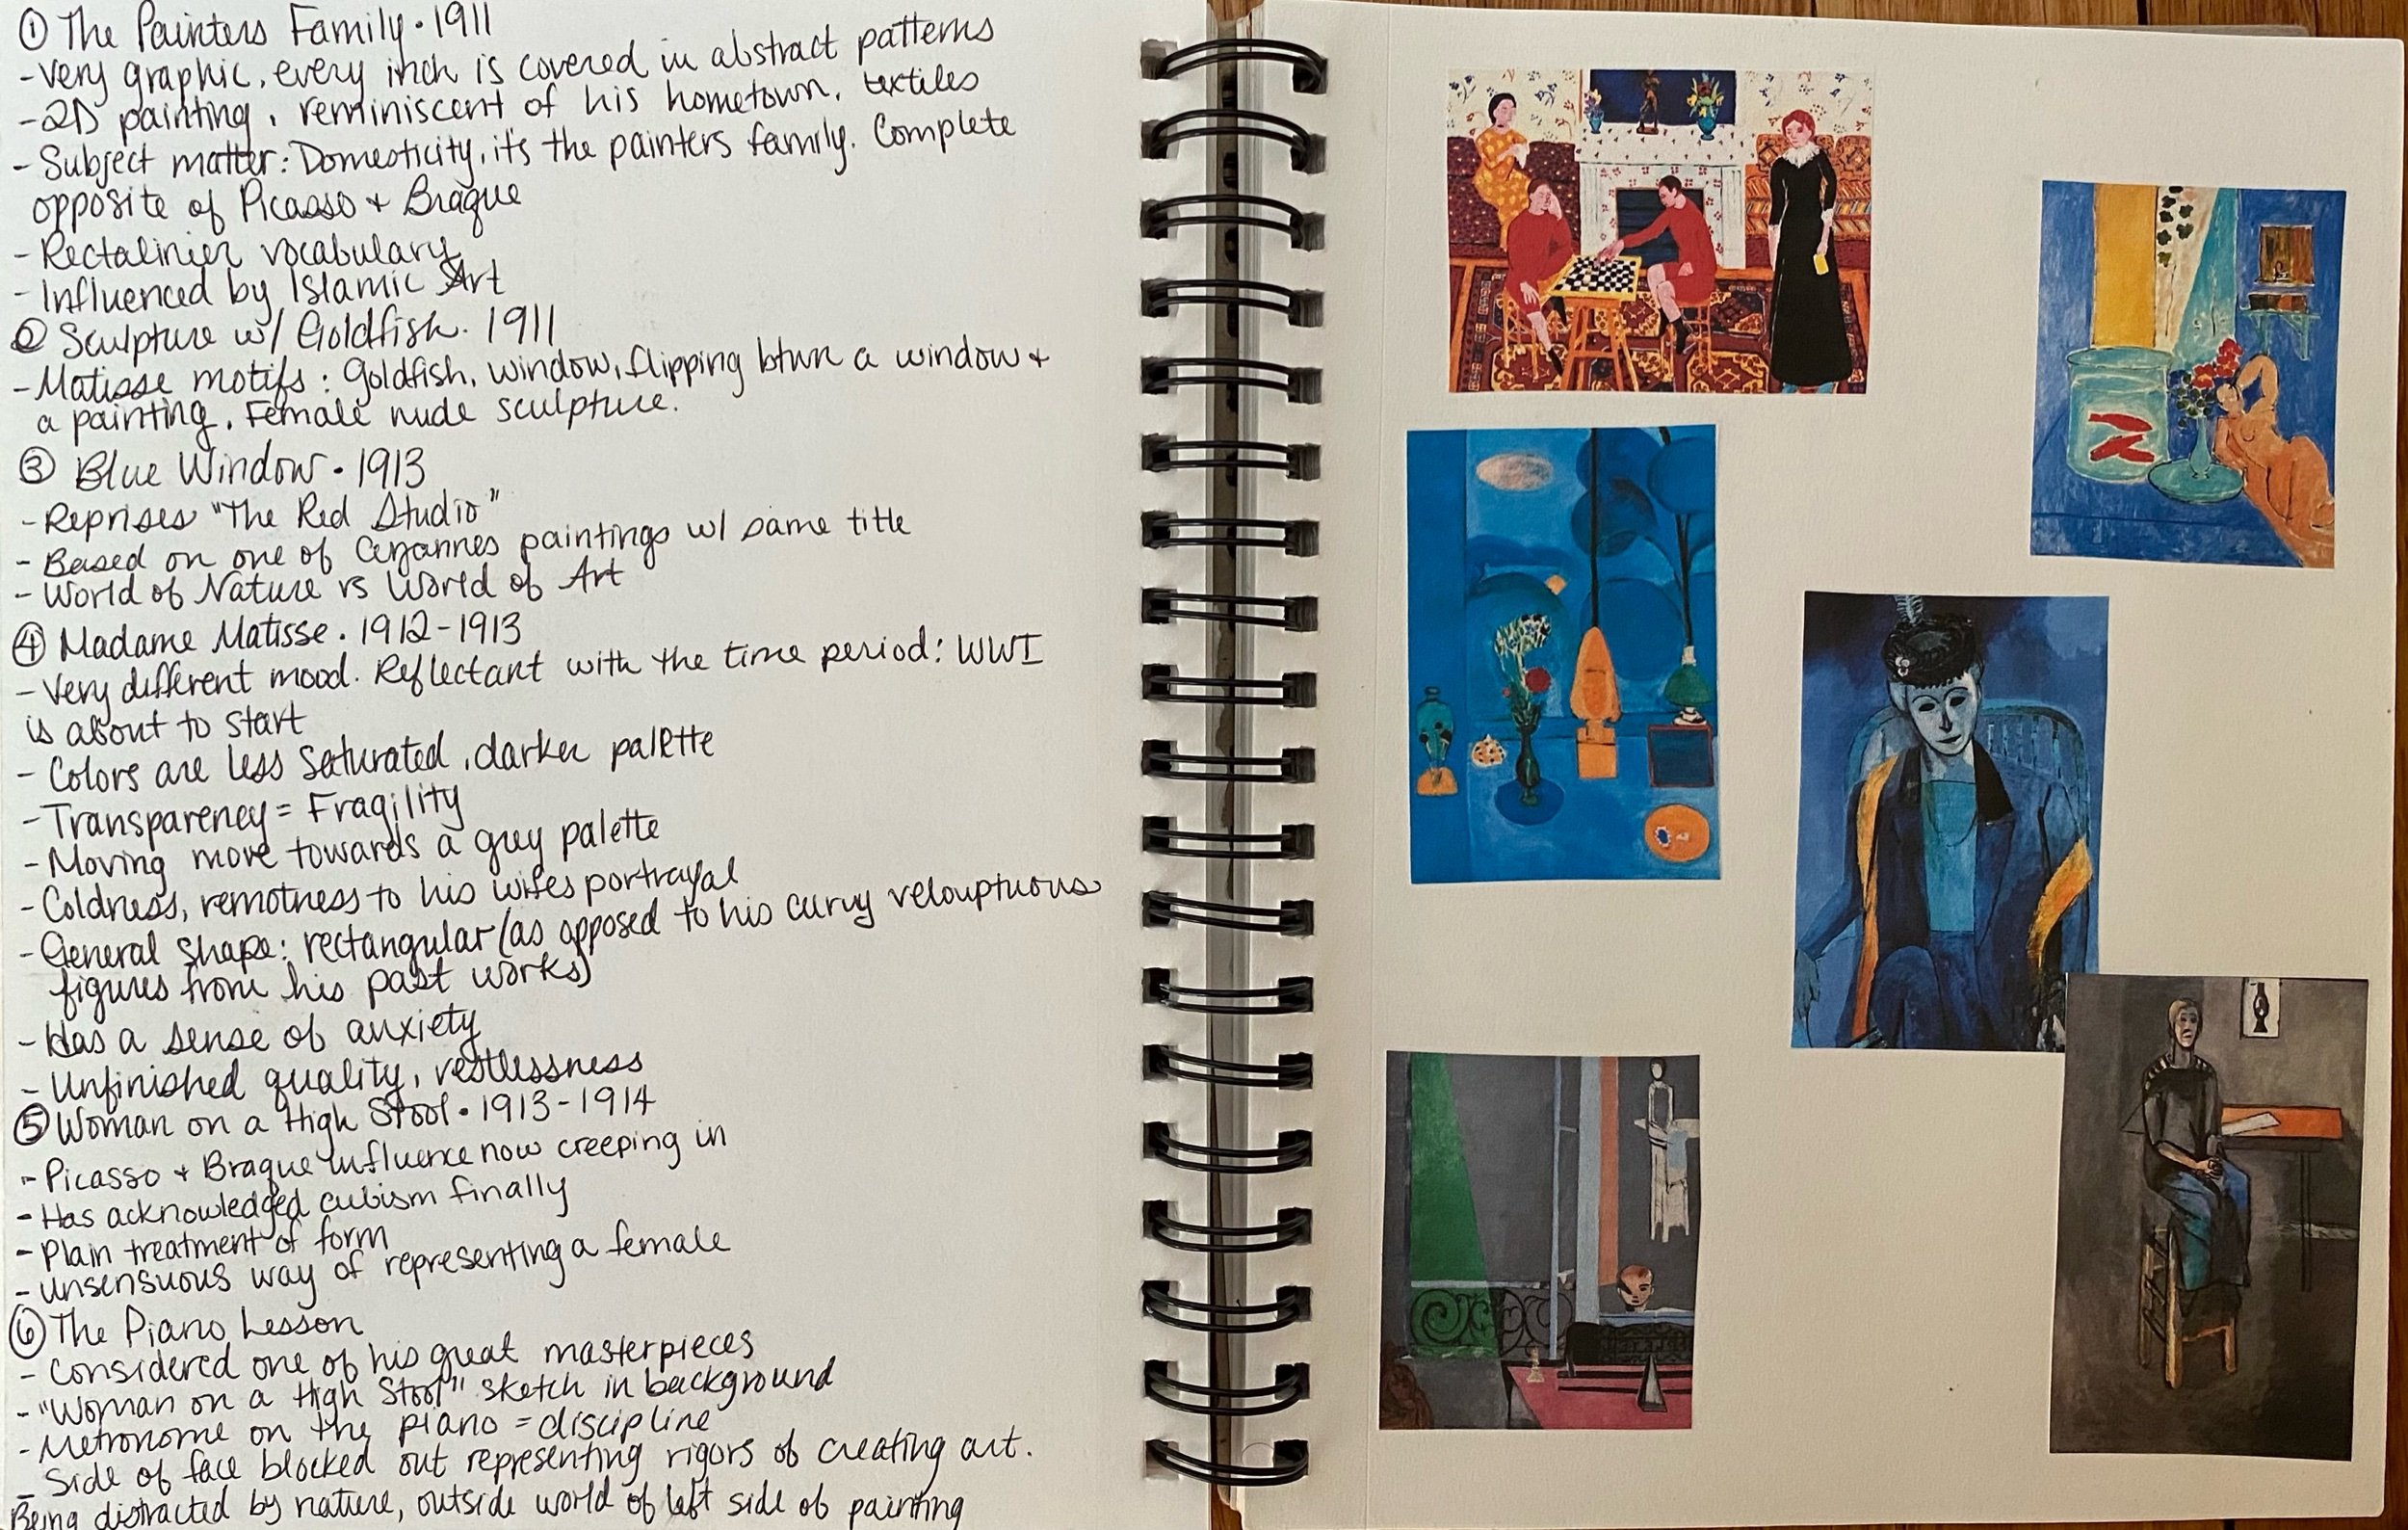 ① The Painters Family • 1911
- Very graphic, every inch is covered in abstract patterns
- 2D painting, reminiscent of his hometown, textiles
- Subject matter: Domesticity, it's the painters family. Complete
opposite of Picasso + Braque
- Rectalinier vocabulary
- Influenced by Islamic Art
② Sculpture w/ Goldfish. 1911
- Matisse motifs: goldfish, window, flipping btwn a window +
a painting. Female nude sculpture.
③ Blue Window • 1913
- Reprises "The Red Studio"
- Based on one of Cezannes paintings w/ same title
- World of Nature vs World of Art
④ Madame Matisse. 1912-1913
- Very different mood. Reflectant with the time period: WWI
is about to start
- Colors are less saturated, darker palette
- Transparency = Fragility
- Moving more towards a grey palette
- Coldness, remotness to his wifes portrayal
- General shape: rectangular (as opposed to his curvy velouptuous
figures from his past works)
- Has a sense of anxiety
- Unfinished quality, restlessness
⑤ Woman on a High Stool • 1913-1914
- Picasso + Braque influence now creeping in
- Has acknowledged cubism finally
- Plain treatment of form
- unsensuous way of representing a female
⑥ The Piano Lesson
- Considered one of his great masterpieces
- "Woman on a High Stool" sketch in background
- Metronome on the piano = discipline
- Side of face blocked out representing rigors of creating art.
Being distracted by nature, outside world of left side of painting